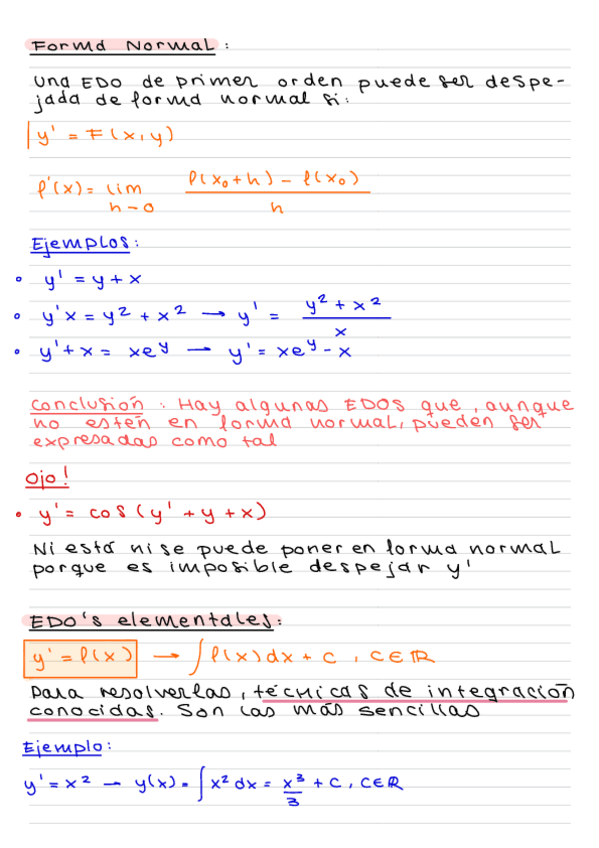 Forma Normal:
Una EDO de primer orden puede ser despe-
jada de forma normal si:
y' = F(x,y)
f'(x) = lim h→0 (f(x₀+h) - f(x₀)) / h
Ejemplos:
• y' = y + x
• y'x = y² + x² → y' = (y² + x²) / x
• y' + x = xe^y → y' = xe^y - x
Conclusión: Hay algunas EDOS que, aunque
no estén en forma normal, pueden ser
expresadas como tal
Ojo!
• y' = cos(y' + y + x)
Ni está ni se puede poner en forma normal
porque es imposible despejar y'
EDO's elementales:
y' = f(x) → ∫ f(x) dx + C, C∈ℝ
Para resolverlas, técnicas de integración
conocidas. Son las más sencillas
Ejemplo:
y' = x² → y(x) = ∫ x² dx = x³/3 + C, C∈ℝ